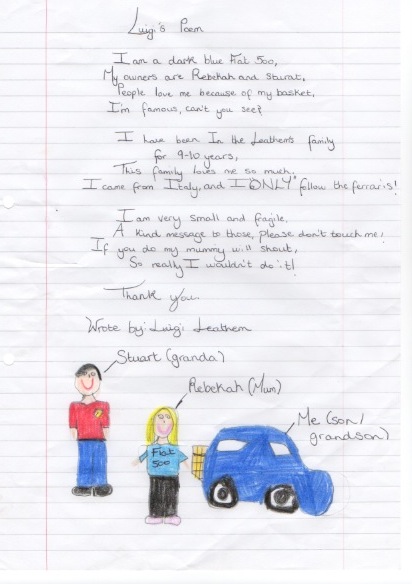 Luigi's Poem
I am a dark blue Fiat 500,
My owners are Rebekah and Sturat,
People love me because of my basket,
I'm famous, can't you see?
I have been In the Leathem's family
for 9-10 years,
This family loves me so much.
I came from Italy, and I "ONLY" follow the ferrari's!
I am very small and fragile,
A kind message to those, Please don't touch me!
If you do my mummy will shout,
So really I wouldn't do it!
Thank you.
Wrote by: Luigi Leathem
Stuart (granda)
Rebekah (Mum)
Me (son/
grandson)
Fiat
500